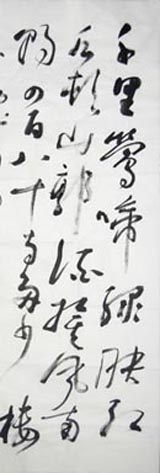 千里鶯啼綠映紅
水村山郭酒旗風南
朝四百八十寺多少樓